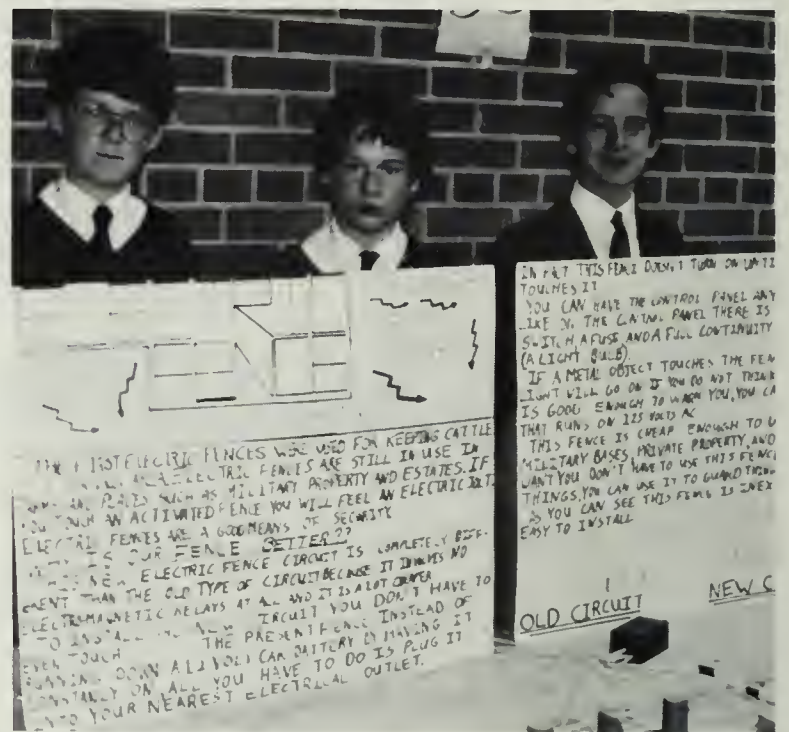 THE FIRST ELECTRIC FENCES WERE USED FOR KEEPING CATTLE
ELECTRIC FENCES ARE STILL IN USE IN
PLACES SUCH AS MILITARY PROPERTY AND ESTATES. IF
YOU TOUCH AN ACTIVATED FENCE YOU WILL FEEL AN ELECTRIC JOLT.
ELECTRIC FENCES ARE A GOOD MEANS OF SECURITY
WHY IS OUR FENCE BETTER??
NEW ELECTRIC FENCE CIRCUIT IS COMPLETELY DIFF-
ERENT THAN THE OLD TYPE OF CIRCUIT BECAUSE IT INVOLVES NO
ELECTROMAGNETIC RELAYS AT ALL AND IT IS A LOT CHEAPER
TO INSTALL. NEW CIRCUIT YOU DON'T HAVE TO
EVEN TOUCH THE PRESENT FENCE INSTEAD OF
RUNNING DOWN A 12 VOLT CAR BATTERY BY HAVING IT
CONSTANTLY ON ALL YOU HAVE TO DO IS PLUG IT
INTO YOUR NEAREST ELECTRICAL OUTLET.
IN FACT THIS FENCE DOESN'T TURN ON UNTI
TOUCHES IT
YOU CAN HAVE THE CONTROL PANEL ANY
LIKE ON THE CONTROL PANEL THERE IS
SWITCH A FUSE AND A FULL CONTINUITY
(A LIGHT BULB).
IF A METAL OBJECT TOUCHES THE FEN
LIGHT WILL GO ON IF YOU DO NOT THINK
IS GOOD ENOUGH TO WARN YOU, YOU CA
THAT RUNS ON 125 VOLTS AC
THIS FENCE IS CHEAP ENOUGH TO U
MILITARY BASES, PRIVATE PROPERTY, AND
WANT YOU DON'T HAVE TO USE THIS FENCE
THINGS, YOU CAN USE IT TO GUARD THING
AS YOU CAN SEE THIS FENCE IS INEX
EASY TO INSTALL
OLD CIRCUIT
NEW C